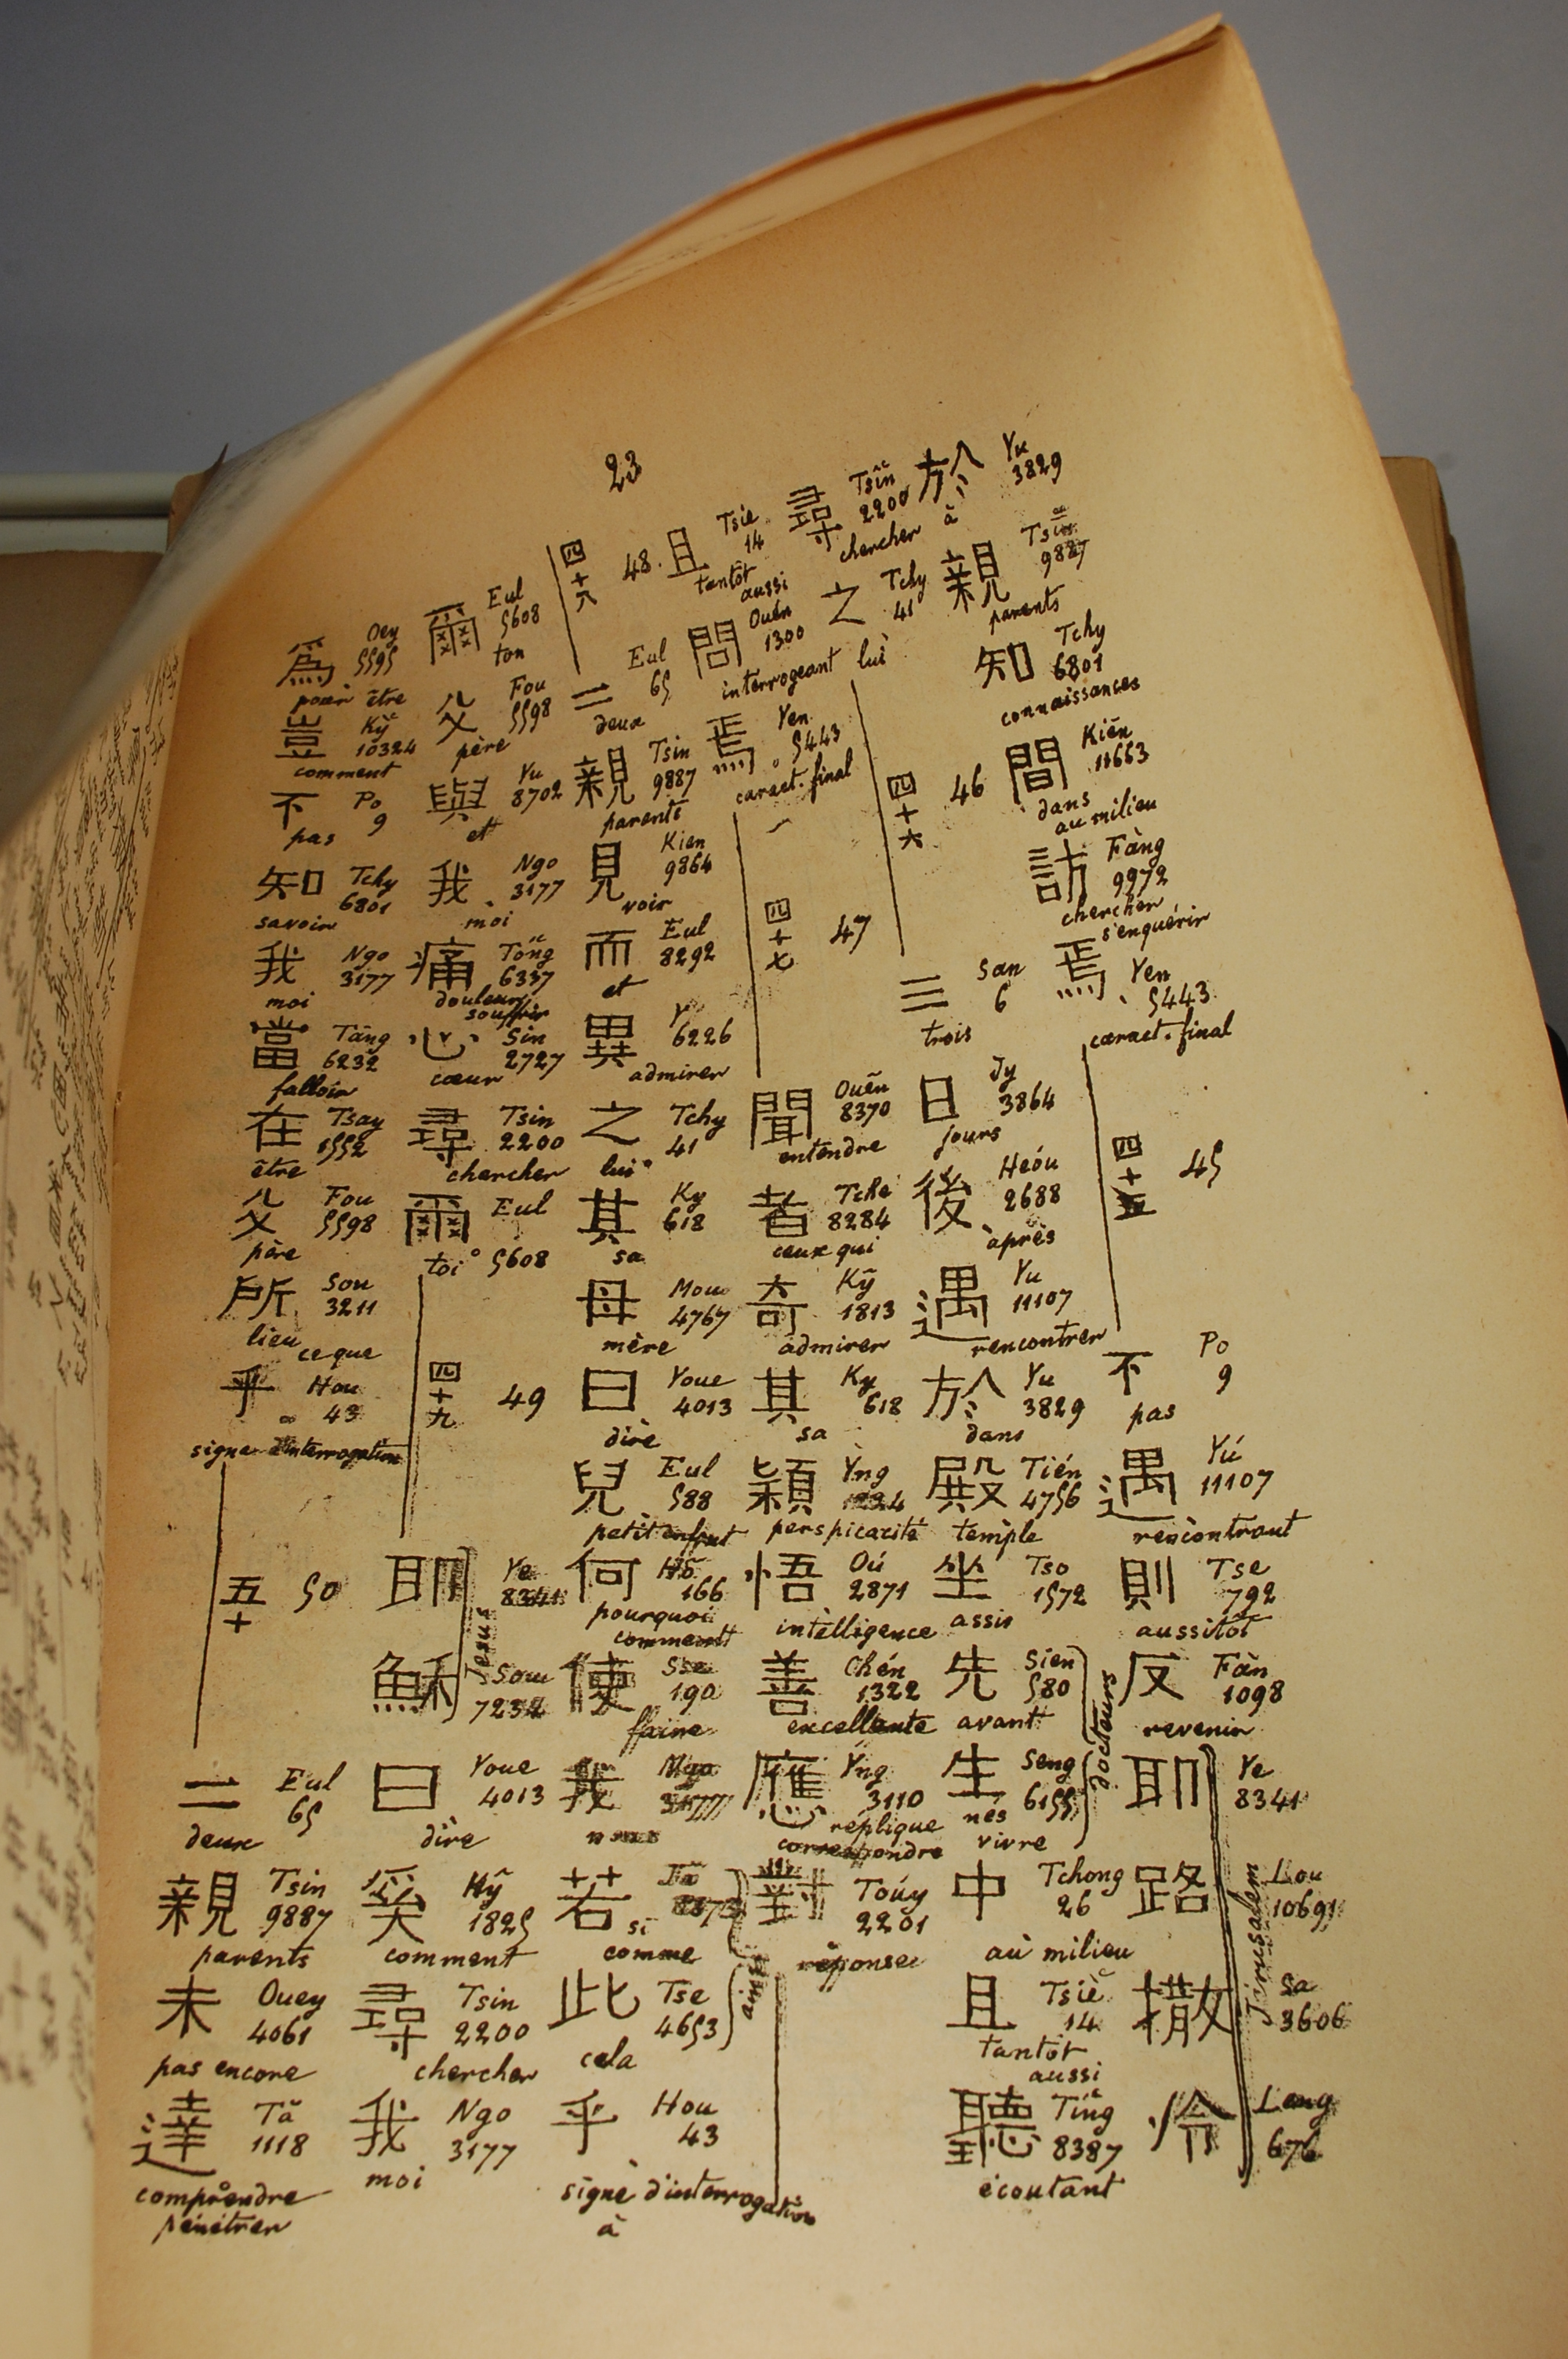 23
於 Yu 3829 à
親 Tsin 9887 parents
知 Tchy 6801 connaissances
間 Kién 11663 dans au milieu
訪 Fàng 9972 chercher s'enquérir
焉 Yen 5443 caract. final
四十五 45
不 Po 9 pas
遇 Yú 11107 rencontrant
則 Tse 792 aussitôt
反 Fàn 1098 revenir
耶 Ye 8341
路 Lou 10691
撒 Sa 3606
冷 Leng 676
Jérusalem
尋 Tsîn 2200 chercher
之 Tchy 41 lui
四十六 46
三 San 6 trois
日 Jy 3864 jours
後 Heóu 2688 après
遇 Yu 11107 rencontrer
於 Yu 3829 dans
殿 Tién 4756 temple
坐 Tso 1572 assis
先 Sien 580 avant
生 Seng 6155 nés vivre
docteurs
中 Tchong 26 au milieu
且 Tsiè 14 tantôt aussi
聽 Ting 8387 écoutant
且 Tsie 14 tantôt aussi
問 Ouén 1300 interrogeant
焉 Yen 5443 caract. final
四十七 47
聞 Ouên 8370 entendre
者 Tche 8284 ceux qui
奇 Ky 1813 admirer
其 Ky 618 sa
穎 Yng perspicacité
悟 Oú 2871 intelligence
善 Chén 1322 excellente
應 Yng 3110 réplique correspondre
對 Toúy 2201 réponse
四十八 48.
二 Eul 65 deux
親 Tsin 9887 parents
見 Kien 9864 voir
而 Eul 8292 et
異 Y 6226 admirer
之 Tchy 41 lui
其 Ky 618 sa
母 Mou 4767 mère
曰 Youe 4013 dire
兒 Eul 588 petit enfant
何 Hô 166 pourquoi comment
使 Sse 190 faire
我 Ngo 3177
若 si comme
此 Tse 4653 cela
ainsi
乎 Hou 43 signe d'interrogation à
爾 Eul 5608 ton
父 Fou 5598 père
與 Yu 8702 et
我 Ngo 3177 moi
痛 Tóng 6337 douleur souffrir
心 Sin 2727 cœur
尋 Tsin 2200 chercher
爾 Eul 5608 toi
四十九 49
耶 Ye 8341
穌 Sou 7234
Jesus
曰 Youe 4013 dire
奚 Hy 1825 comment
尋 Tsin 2200 chercher
我 Ngo 3177 moi
爲 Oey 5595 pour être
豈 Ky 10324 comment
不 Po 9 pas
知 Tchy 6801 savoir
我 Ngo 3177 moi
當 Tang 6232 falloir
在 Tsay 1552 être
父 Fou 5598 père
所 Sou 3211 lieu ce que
乎 Hou 43 signe d'interrogation
五十 50
二 Eul 65 deux
親 Tsin 9887 parents
未 Ouey 4061 pas encore
達 Tă 1118 comprendre pénétrer